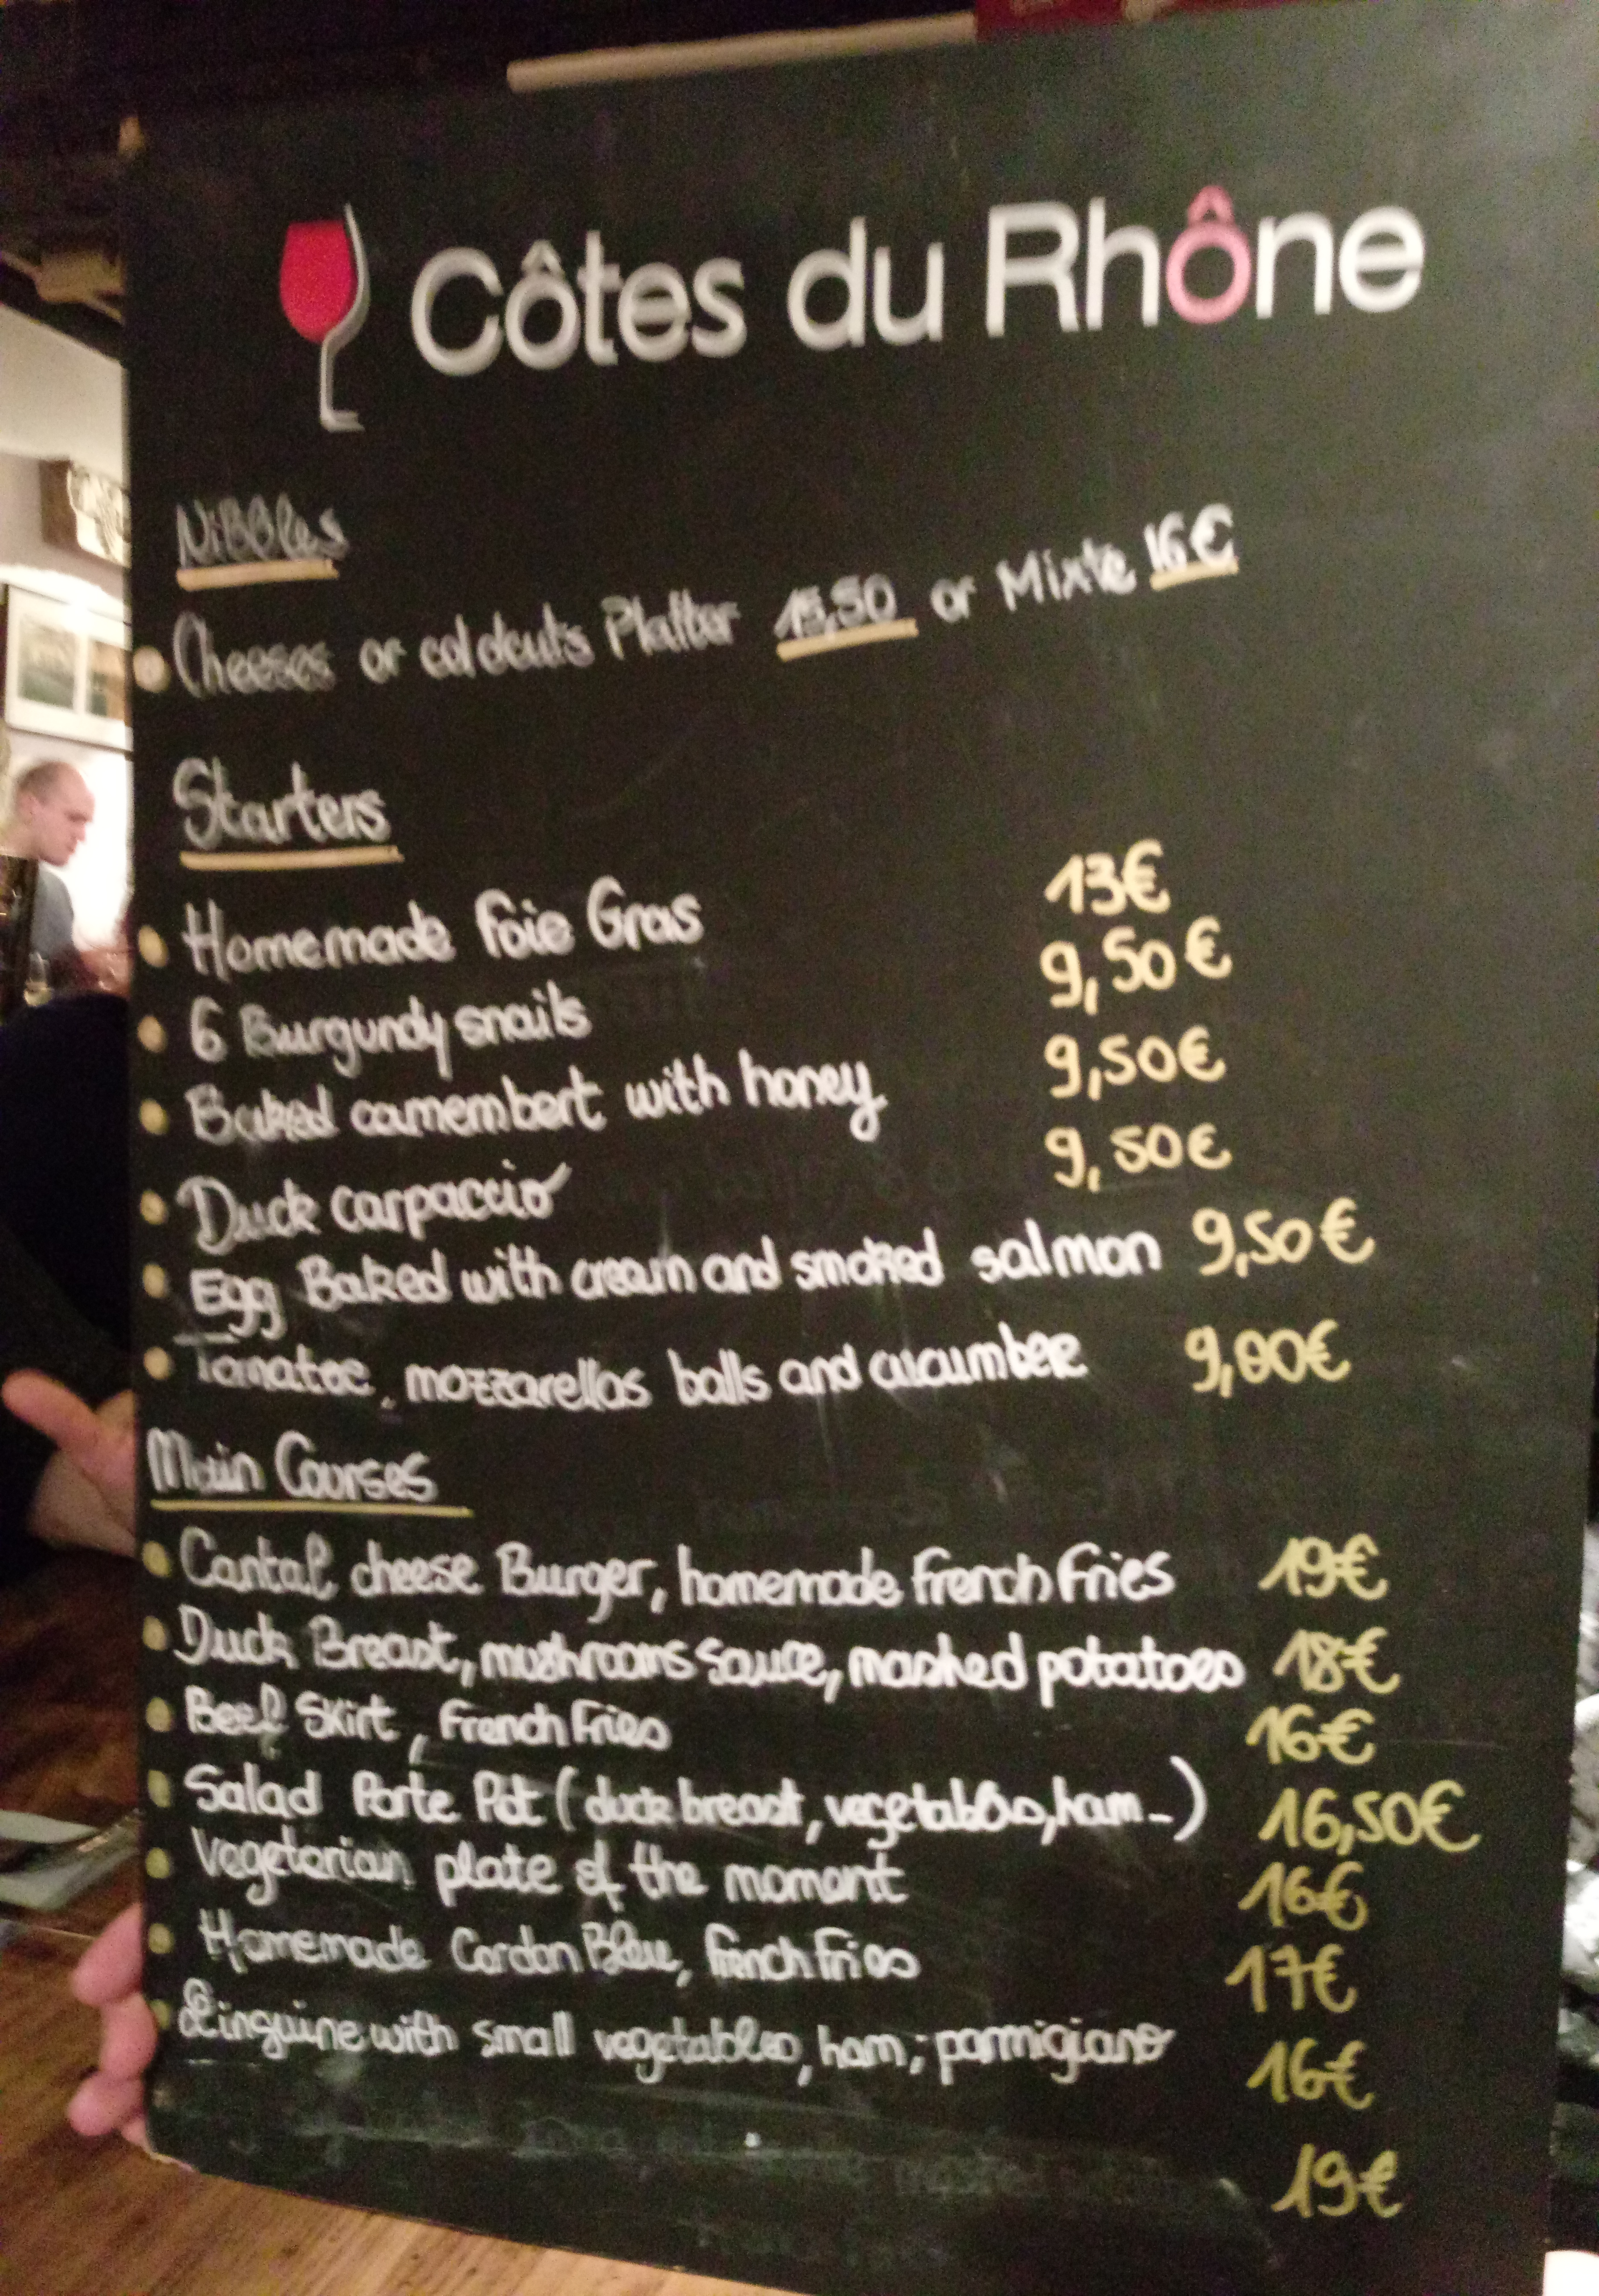 Côtes du Rhône
Nibbles
Cheeses or coldcuts Platter 15,50 or Mixte 16€
Starters
Homemade Foie Gras 13€
6 Burgundy snails 9,50€
Baked camembert with honey 9,50€
Duck carpaccio 9,50€
Egg Baked with cream and smoked salmon 9,50€
Tomatoe, mozzarellas balls and cucumber 9,00€
Main Courses
Cantal cheese Burger, homemade French Fries 19€
Duck Breast, mushrooms sauce, mashed potatoes 18€
Beef Skirt, French Fries 16€
Salad Porte Pot (duck breast, vegetables, ham...) 16,50€
Vegetarian plate of the moment 16€
Homemade Cordon Bleu, French Fries 17€
Linguine with small vegetables, ham; parmigiano 16€
19€